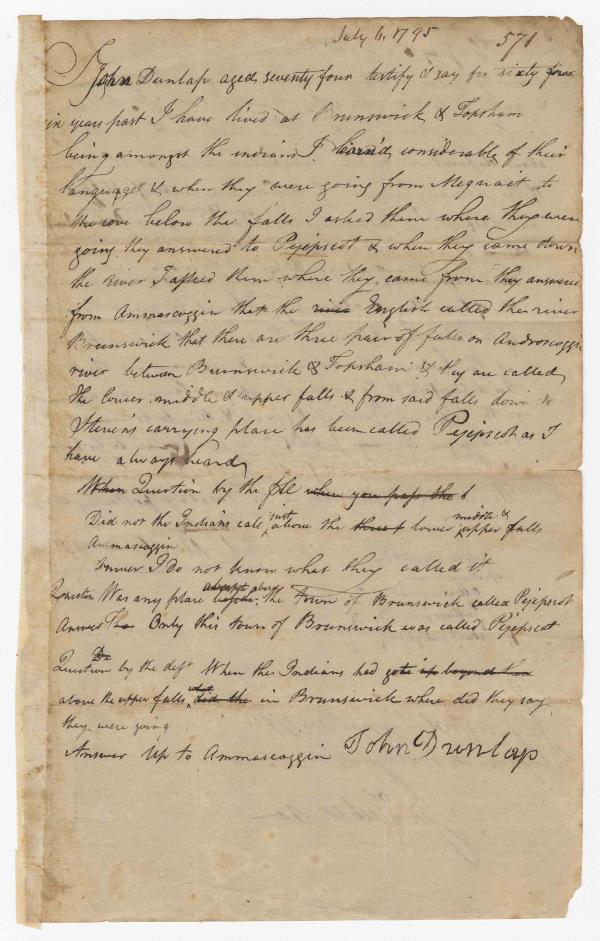 July 6. 1795
571
I John Dunlap aged seventy four testify & say for sixty four
years past I have lived at Brunswick & Topsham
being amongst the indians I learnd considerable of their
language & when they were going from Mequait to
the cove below the falls I asked them where they were
going they answered to Pejepscot & when they came down
the river I asked them where they came from they answered
from Ammascoggin that the river English called the river
Brunswick that there are three pair of falls on Androscoggin
river between Brunswick & Topsham & they are called
the lower middle & upper falls & from said falls down to
Steven's carrying place has been called Pejepscot as I
have always heard
When Question by the Ple when you pass the
Did not the Indians call just above the lower middle & upper falls
Ammascoggin
Answer I do not know what they called it
Question Was any place above the Town of Brunswick called Pejepscot
Answer The Only this town of Brunswick was called Pejepscot
Question by the deft When the Indians had gott up beyond
above the upper falls what did the in Brunswick where did they say
they were going
Answer Up to Ammascoggin John Dunlap